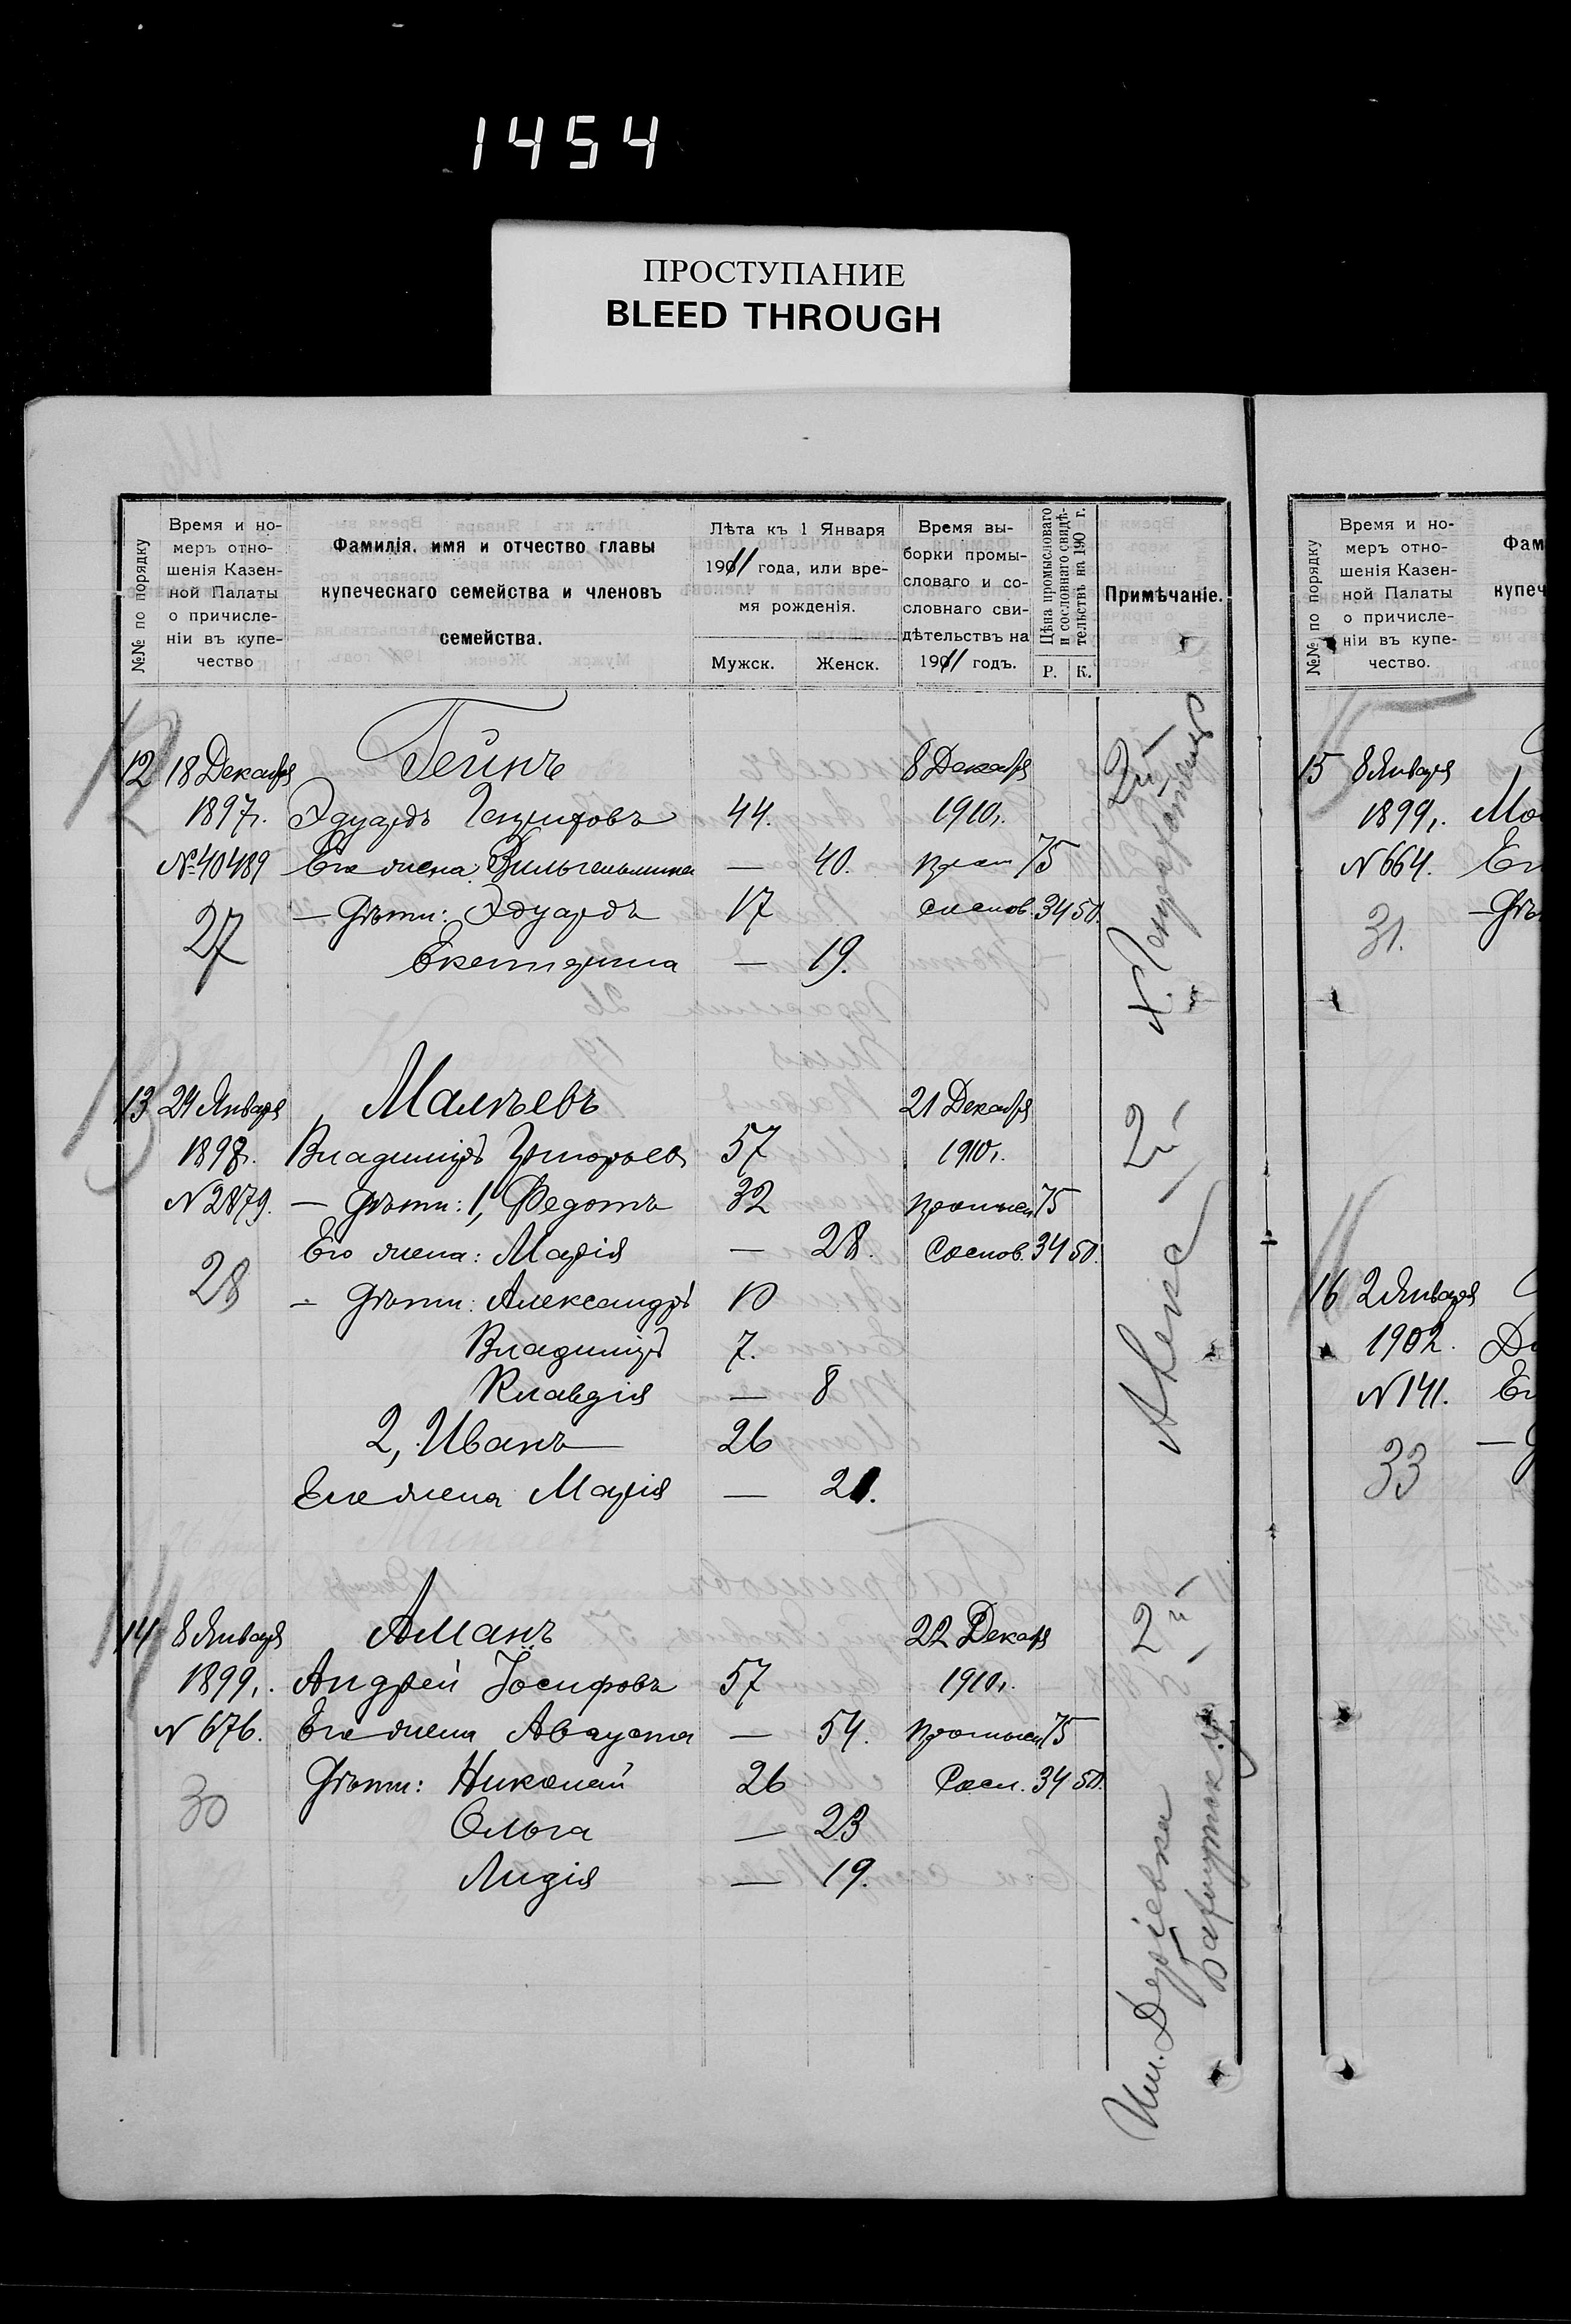 1454
ПРОСТУПАНИЕ
BLEED THROUGH
№№ по порядку
Время и но-
меръ отно-
шенія Казен-
ной Палаты
о причисле-
ніи въ купе-
чество
Фамилія, имя и отчество главы
купеческаго семейства и членовъ
семейства.
Лѣта къ 1 Января
1911 года, или вре-
мя рожденія.
Мужск. Женск.
Время вы-
борки промы-
словаго и со-
словнаго сви-
дѣтельствъ на
1911 годъ.
Цѣна промысловаго
и сословнаго свидѣ-
тельства на 190 г.
Р. К.
Примѣчаніе.
12 18 Декабря Гейнъ 8 Декабря
1897г. Эдуардъ Генриховъ 44. 1910г.
№ 40489 Его жена: Вильгельмина — 40. пром 75
27 — Дѣти: Эдуардъ 17 сослов. 34 50.
Екатерина — 19.
2й
13 24 Января Малѣевъ 21 Декабря
1898г. Владиміръ Григорьев 57 1910г.
N 2879. — Дѣти: 1, Федотъ 32 промысл 75
28 Его жена: Марія — 28. Сослов. 34 50.
— Дѣти: Александръ 10
Владиміръ 7.
Клавдія — 8
2, Иванъ 26
Его жена Марія — 21.
2й
14 8 Января Аманъ 22 Декабря
1899г. Андрей Іосифовъ 57 1910г.
N 676. Его жена Августа — 54. промысл 75
30 Дѣти: Николай 26 Сосл. 34 50.
Ольга — 23
Лидія — 19.
2й
№№ по порядку
Время и но-
меръ отно-
шенія Казен-
ной Палаты
о причисле-
ніи въ купе-
чество.
Фам
купеч
15 8 Января
1899г. Мо
N 664. Ег
31. — Дѣ
16 2 Января
1902.
N 141. Ег
33